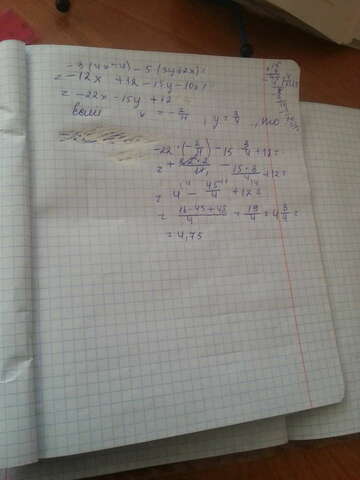 -3(4x-4) - 5(3y+2x)=
= -12x +12 - 15y - 10x=
= -22x - 15y + 12
если x = -2/11, y = 3/4, то
-22·(-2/11) - 15 3/4 + 12=
= +22·2/11 - 15·3/4 + 12=
= 4 - 45/4 + 12=
= 16-45+48/4 = 19/4 = 4 3/4 =
= 4,75